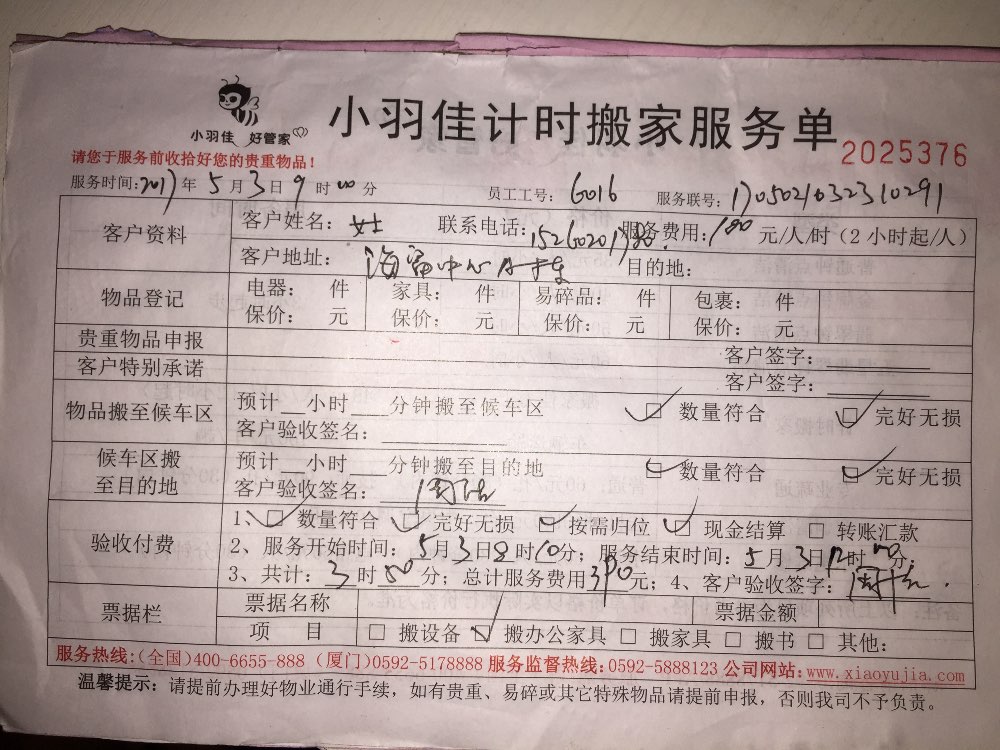 小羽佳 好管家
小羽佳计时搬家服务单
2025376
请您于服务前收拾好您的贵重物品！
服务时间：2017年5月3日9时00分 员工工号：G016 服务联号：170502103231 0291
客户资料 客户姓名：女士 联系电话：15260201780 服务费用：180元/人/时（2小时起/人）
客户地址：海富中心A 目的地：
物品登记 电器： 件 家具： 件 易碎品： 件 包裹： 件
保价： 元 保价： 元 保价： 元 保价： 元
贵重物品申报 客户签字：
客户特别承诺 客户签字：
物品搬至候车区 预计__小时__分钟搬至候车区 ☑ 数量符合 ☑ 完好无损
客户验收签名：
候车区搬至目的地 预计__小时__分钟搬至目的地 ☑ 数量符合 ☑ 完好无损
客户验收签名：
验收付费 1、☑ 数量符合 ☑ 完好无损 ☑ 按需归位 ☑ 现金结算 □ 转账汇款
2、服务开始时间：5月3日8时10分；服务结束时间：5月3日12时00分。
3、共计：3时50分；总计服务费用390元；4、客户验收签字：
票据栏 票据名称 票据金额
项 目 □ 搬设备 ☑ 搬办公家具 □ 搬家具 □ 搬书 □ 其他：
服务热线：（全国）400-6655-888（厦门）0592-5178888 服务监督热线：0592-5888123 公司网站：www.xiaoyujia.com
温馨提示：请提前办理好物业通行手续，如有贵重、易碎或其它特殊物品请提前申报，否则我司不予负责。